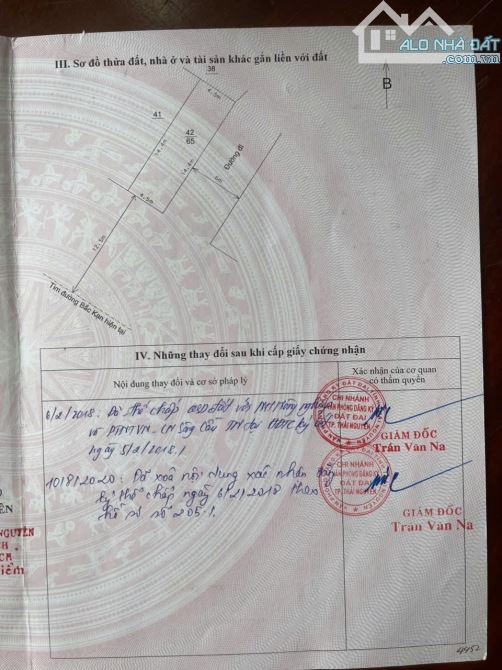 ALO NHÀ ĐẤT
.com.vn
III. Sơ đồ thửa đất, nhà ở và tài sản khác gắn liền với đất
38
4,5m
B
41
42
65
14,4m
14,4m
Đường đi
6m
4,5m
12,5m
Tim đường Bắc Kạn hiện tại
IV. Những thay đổi sau khi cấp giấy chứng nhận
Nội dung thay đổi và cơ sở pháp lý
Xác nhận của cơ quan
có thẩm quyền
6/2/2018. Đã thế chấp QSD đất với
ngày 5/2/2018.
CHI NHÁNH
VĂN PHÒNG ĐĂNG KÝ
ĐẤT ĐAI
TP. THÁI NGUYÊN
GIÁM ĐỐC
Trần Văn Na
10/8/2020: Đã xoá nội dung xác nhận đăng
ký thế chấp ngày 6/2/2018 theo
hồ sơ số 205.
CHI NHÁNH
VĂN PHÒNG ĐĂNG KÝ
ĐẤT ĐAI
TP. THÁI NGUYÊN
GIÁM ĐỐC
Trần Văn Na
NGUYÊN
4452